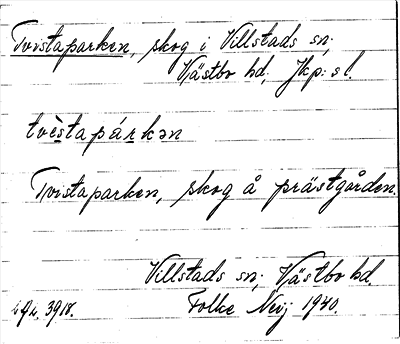 Tvistaparken, skog i Villstads sn;
Västbo hd, Jkp: s l.
tvèstapárkən
Tvistaparken, skog å prästgården.
Villstads sn; Västbo hd.
3918. Folke 1940.